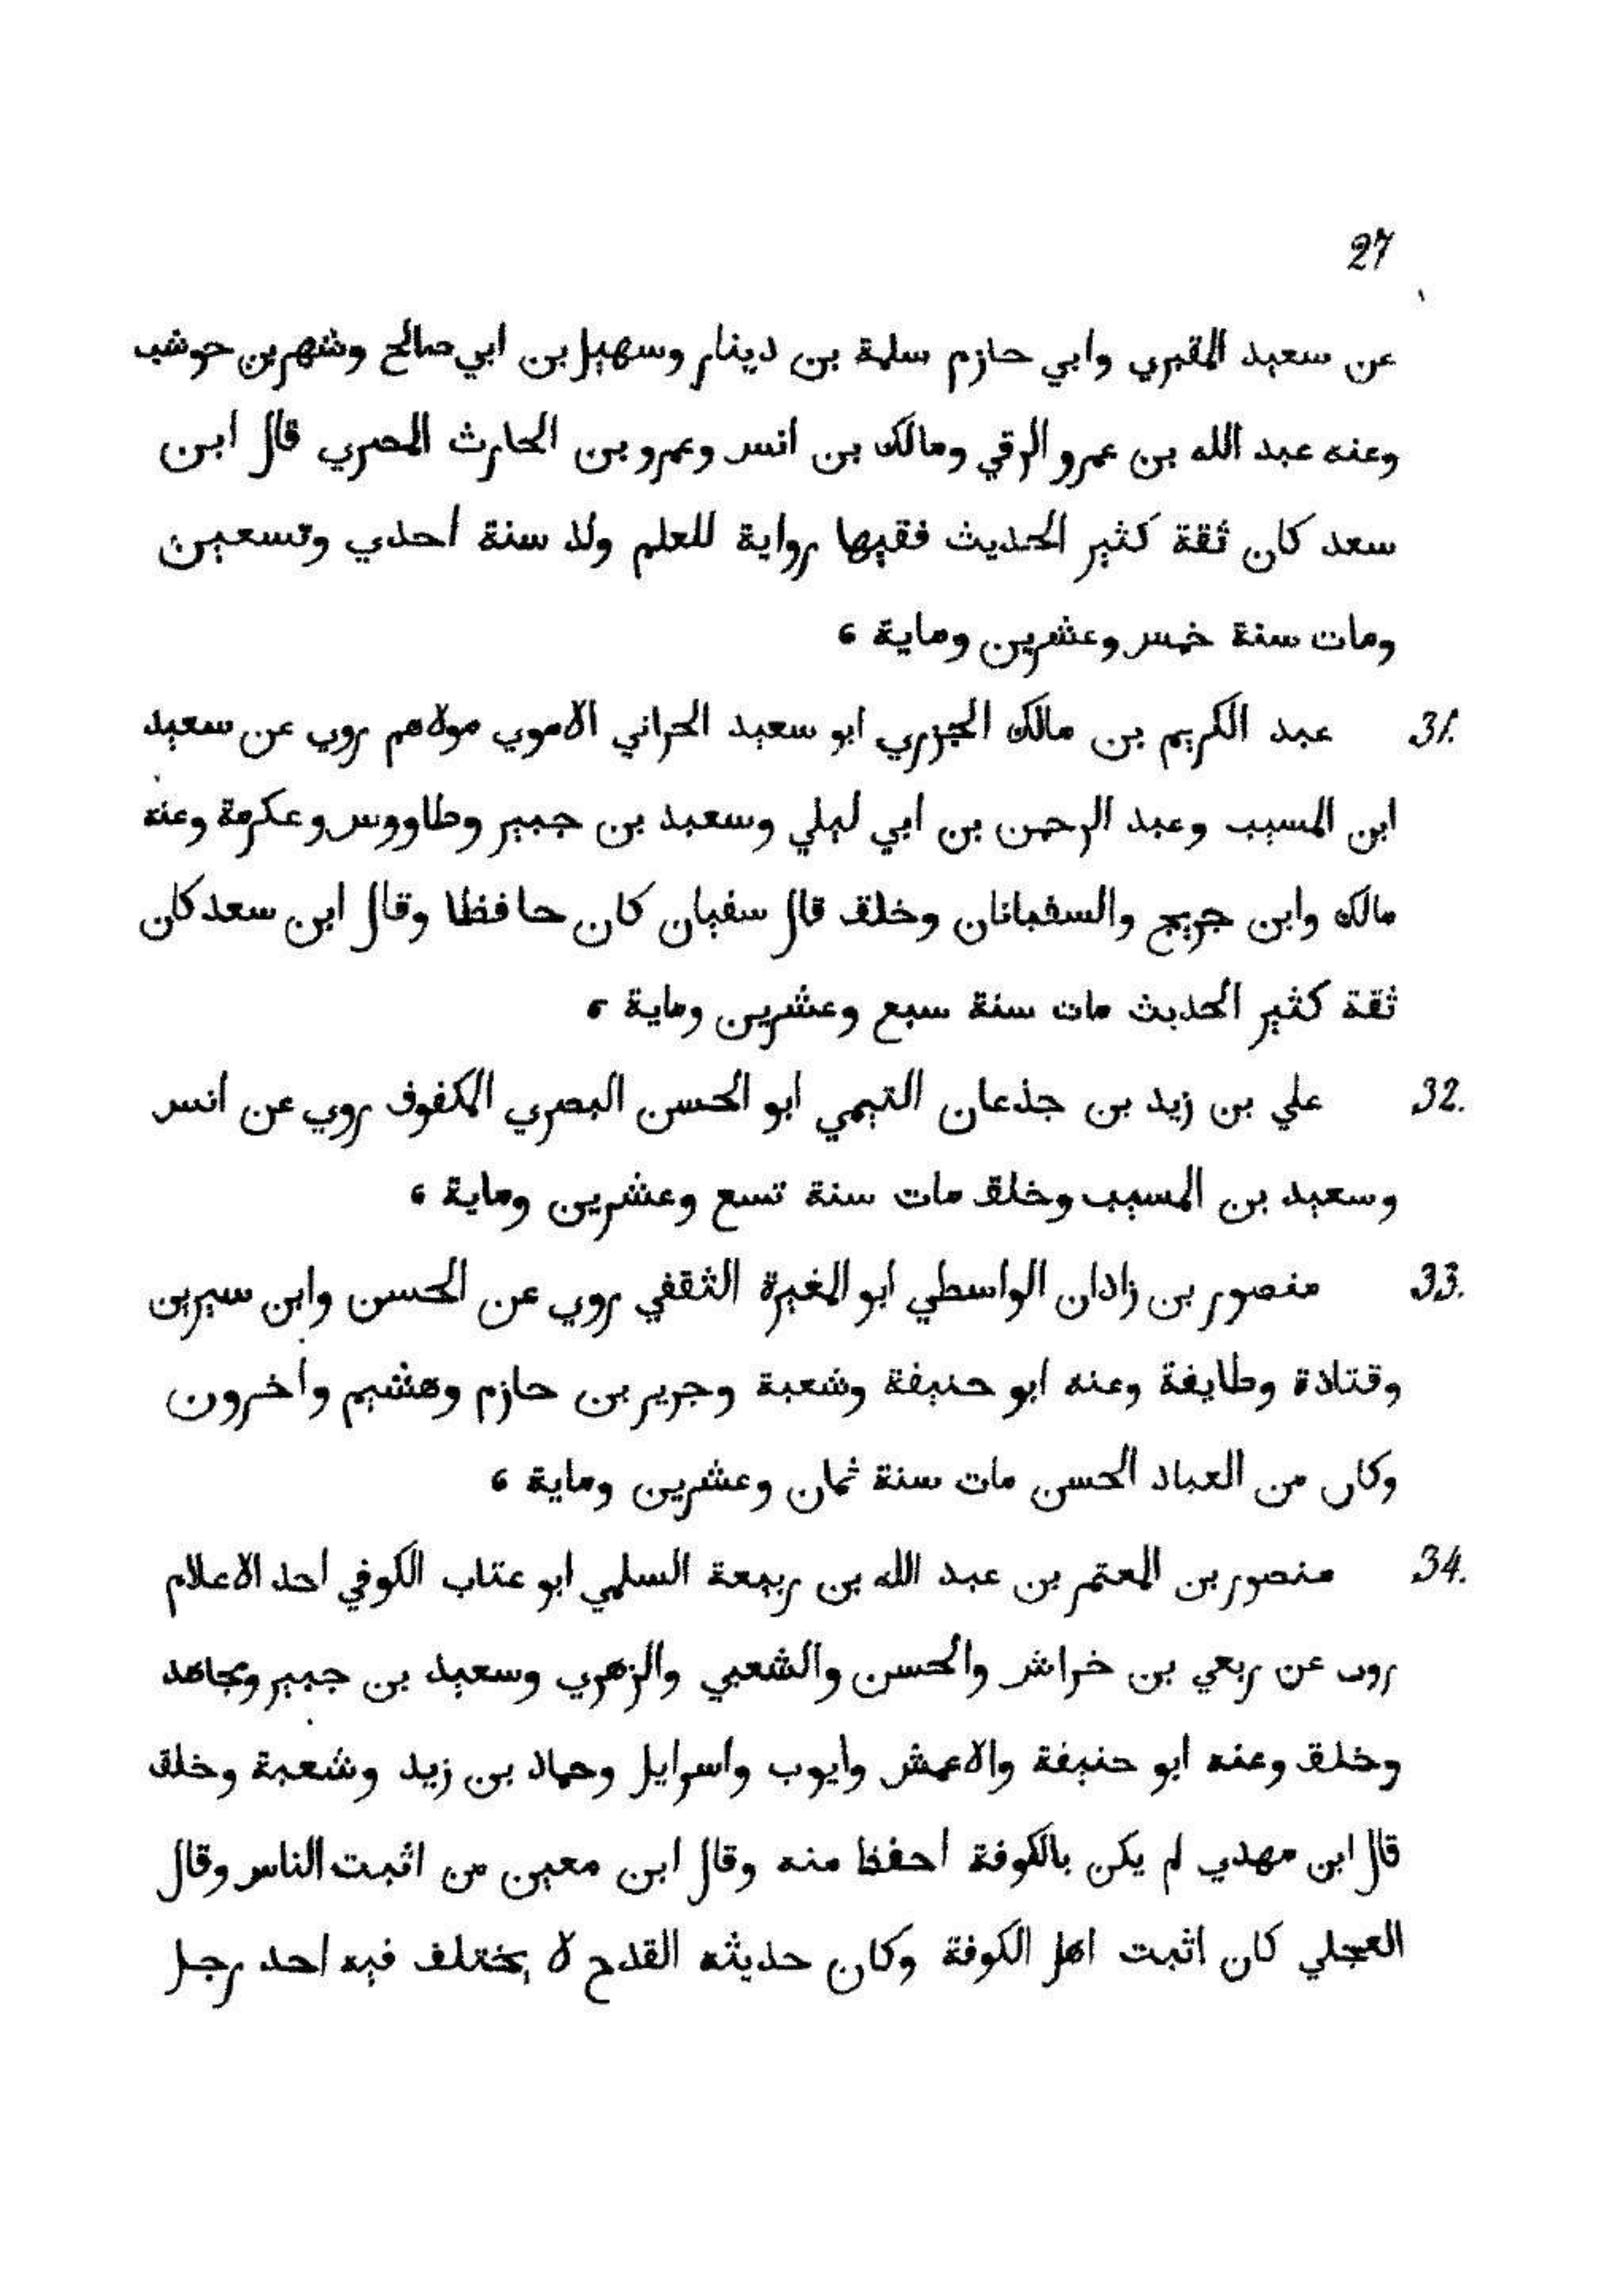 27
عن سعيد المقبري وابي حازم سلمة بن دينار وسهيل بن ابي صالح وشهر بن حوشب
وعنه عبد الله بن عمرو الرقي ومالك بن انس وعمرو بن الحارث المصري قال ابن
سعد كان ثقة كثير الحديث فقيها رواية للعلم ولد سنة أحدي وتسعين
ومات سنة خمس وعشرين وماية ،
31. عبد الكريم بن مالك الجزري ابو سعيد الحراني الاموي مولاهم روي عن سعيد
ابن المسيب وعبد الرحمن بن ابي ليلي وسعيد بن جبير وطاووس وعكرمة وعنه
مالك وابن جريج والسفيانان وخلق قال سفيان كان حافظا وقال ابن سعد كان
ثقة كثير الحديث مات سنة سبع وعشرين وماية ،
32. علي بن زيد بن جذعان التيمي ابو الحسن البصري المكفوف روي عن انس
وسعيد بن المسيب وخلق مات سنة تسع وعشرين وماية ،
33. منصور بن زادان الواسطي ابو المغيرة الثقفي روي عن الحسن وابن سيرين
وقتادة وطايفة وعنه ابو حنيفة وشعبة وجرير بن حازم وهشيم وأخرون
وكان من العباد الحسن مات سنة ثمان وعشرين وماية ،
34. منصور بن المعتمر بن عبد الله بن ربيعة السلمي ابو عتاب الكوفي احد الاعلام
روى عن ربعي بن خراش والحسن والشعبي والزهري وسعيد بن جبير ومجاهد
وخلق وعنه ابو حنيفة والاعمش وايوب واسرايل وحماد بن زيد وشعبة وخلق
قال ابن مهدي لم يكن بالكوفة احفظ منه وقال ابن معين من اثبت الناس وقال
العجلي كان اثبت اهل الكوفة وكان حديثه القدح لا يختلف فيه احد رجل